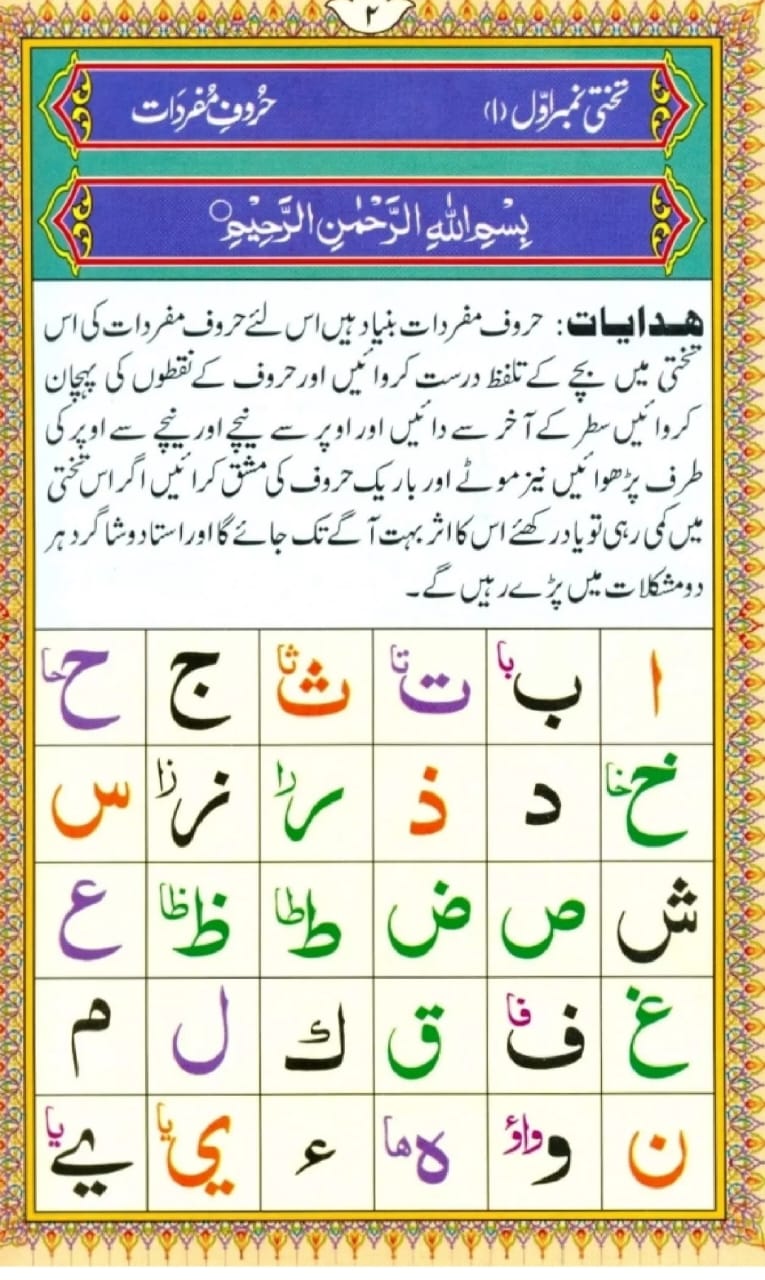 ۲
تختی نمبر اوّل (۱) حُروفِ مُفرَدَات
بِسْمِ اللهِ الرَّحْمٰنِ الرَّحِيْمِ
ھدایات: حروف مفردات بنیاد ہیں اس لئے حروف مفردات کی اس
تختی میں بچے کے تلفظ درست کروائیں اور حروف کے نقطوں کی پہچان
کروائیں سطر کے آخر سے دائیں اور اوپر سے نیچے اور نیچے سے اوپر کی
طرف پڑھوائیں نیز موٹے اور باریک حروف کی مشق کرائیں اگر اس تختی
میں کمی رہی تو یاد رکھئے اس کا اثر بہت آگے تک جائے گا اور استاد و شاگرد ہر
دو مشکلات میں پڑے رہیں گے۔
ا ب با ت تا ث ثا ج ح حا
خ خا د ذ ر را ز زا س
ش ص ض ط طا ظ ظا ع
غ ف فا ق ك ل م
ن و واؤ ہ ھا ء ي یا ے یا